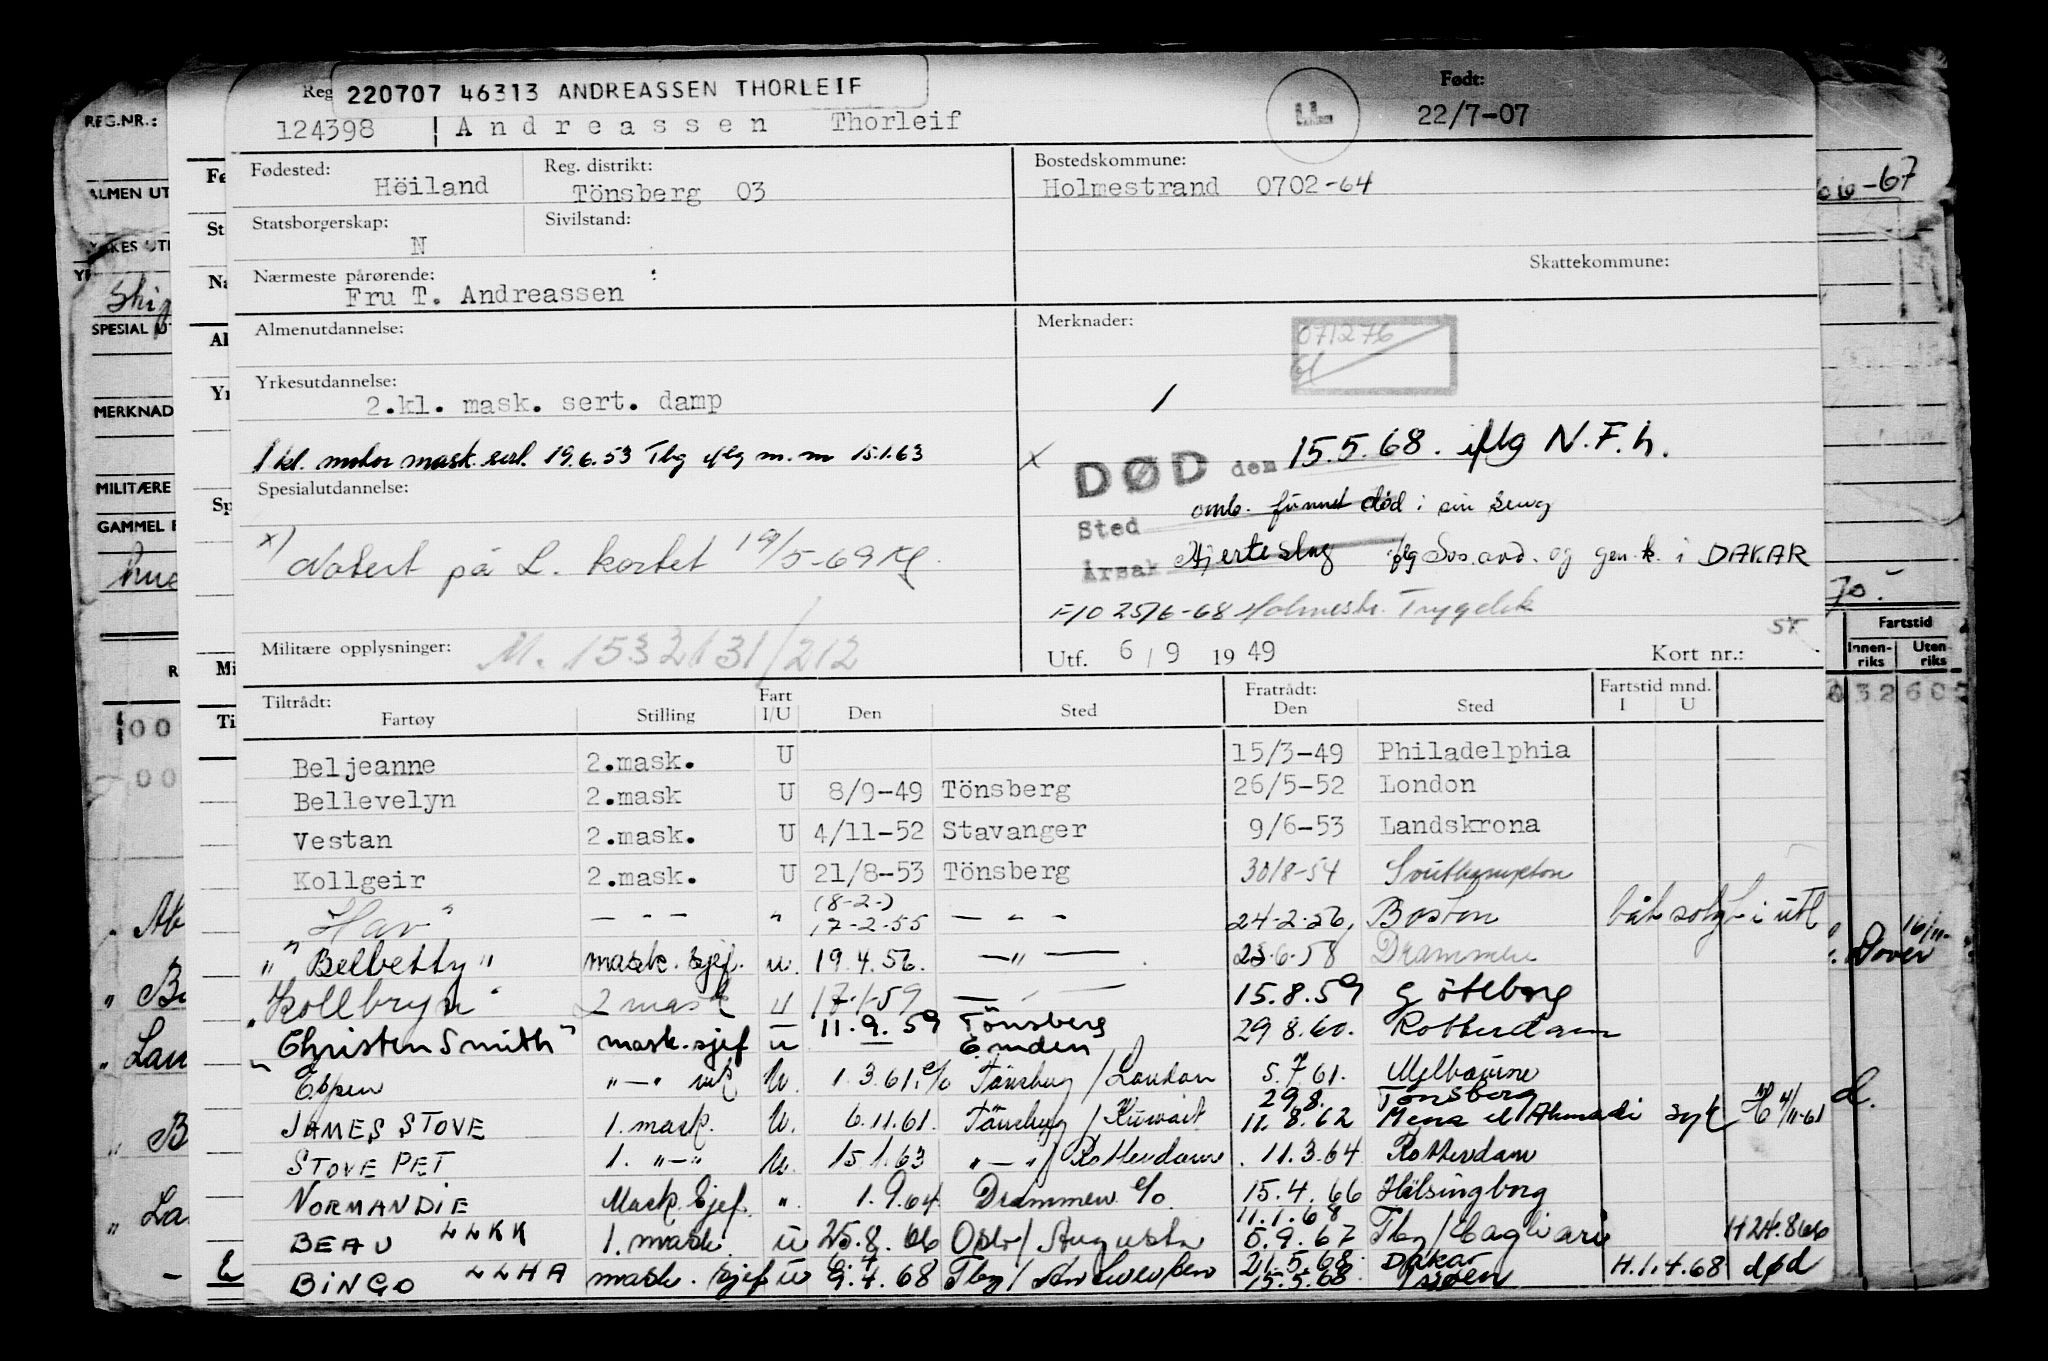 220707 46313 ANDREASSEN THORLEIF
Reg
Født:
REG.NR.:
124398 Andreassen Thorleif
22/7-07
Fødested:
Reg. distrikt:
Bostedskommune:
Höiland
Tönsberg 03
Holmestrand 0702-64
-67
ALMEN UT
Statsborgerskap:
Sivilstand:
N
Skattekommune:
Nærmeste pårørende:
Fru T. Andreassen
SPESIAL UT
Almenutdannelse:
Merknader:
071276
Yrkesutdannelse:
2.kl. mask. sert. damp
MERKNAD
1 kl. motor mask. sert. 19.6.53 Tbg iflg m.m 15.1.63
x DØD den 15.5.68. iflg N.F.h.
MILITÆRE
Spesialutdannelse:
Sted omb. funnet død i sin seng
GAMMEL
x) Notert på L. kortet 19/5-69
Årsak Hjerteslag iflg Sos.avd. og gen.k. i DAKAR
F/O 25/6-68 Holmestr. Trygdek
70.-
Militære opplysninger:
M. 1532131/212
Utf. 6/9 1949
Kort nr.:
Fartstid
Innen-riks Uten riks
Tiltrådt:
Fartøy Stilling Fart I/U Den Sted
Fratrådt: Den Sted
Fartstid mnd. I U
Beljeanne 2.mask. U 15/3-49 Philadelphia
Bellevelyn 2.mask U 8/9-49 Tönsberg 26/5-52 London
Vestan 2.mask. U 4/11-52 Stavanger 9/6-53 Landskrona
Kollgeir 2.mask. U 21/8-53 Tönsberg 30/8-54 Southampton
"Hav" — " — " (8-2-) 17-2-55 — " — 24-2-56, Boston båt solgt i utl
"Belbetty" mask. sjef. u. 19.4.56. —"— 23.6.58 Drammen
"Kollbryn" 2 mask u 17-1-59 —"— 15.8.59 Göteborg
"Christen Smith" mask.sjef u 11.9.59 Tönsberg Emden 29 8.60. Rotterdam
Espen "—" vik U. 1.3.61. c/o Tönsberg / London 5.7 61. Melbourne
JAMES STOVE 1. mask. U. 6.11.61. Tönsberg / Kuwait 29.8. Tönsberg 11.8.62 Mena el Ahmadi syk H 4/11-61
STOVE PET 1. "—" U. 15.1.63 "—"/ Rotterdam 11.3.64 Rotterdam
NORMANDIE Mask.Sjef. ". 1.9.64 Drammen c/o. 15.4.66 Helsingborg
BEAU LLKK 1. mask. u 25.8.66 Oslo/ Augusta 11.1.68 5.9.67 Tbg/Cagliari H 24.8 66
BINGO LLHA mask. sjef U 9.4.68 Tbg/ 21.5.68. Dakar 15.5.68. sjøen H.1.4.68 død